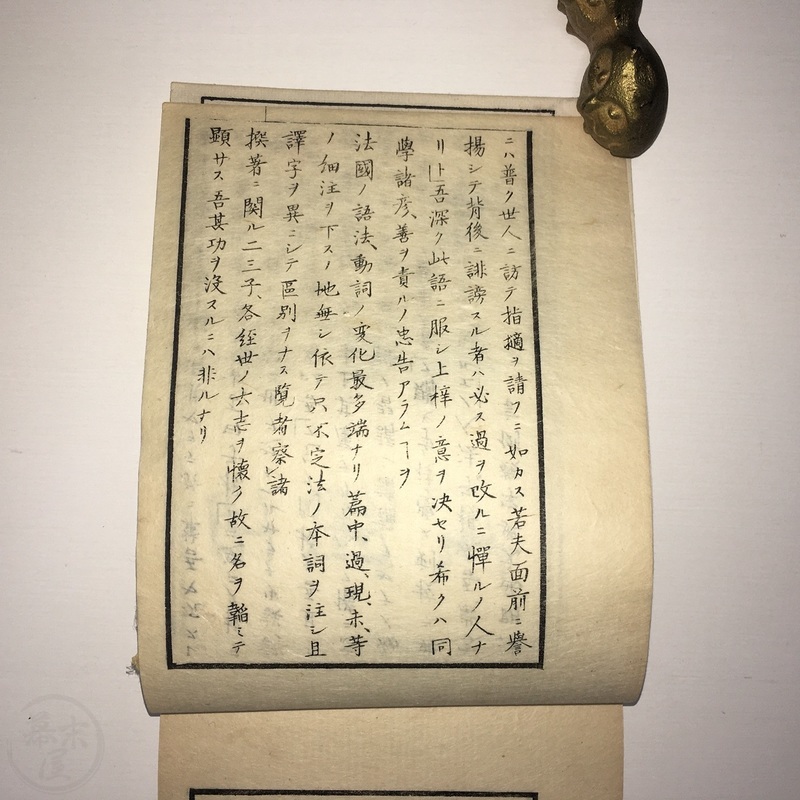 ニハ普ク世人ニ訪テ指摘ヲ請フニ如カス若夫面前ニ譽
揚シテ背後ニ誹謗スル者ハ必ス過ヲ改ルニ憚ルノ人ナ
リト吾深ク此語ニ服シ上梓ノ意ヲ决セリ希クハ同
學諸彦善ヲ責ルノ忠告アラムヿヲ
法國ノ語法、動詞ノ変化最多端ナリ篇中、過、現、未、等
ノ細注ヲ下スノ地無シ依テ只不定法ノ本詞ヲ注シ且
譯字ヲ異ニシテ區別ヲナス覧者察レ諸
撰著ニ関ル二三子、各経世ノ大志ヲ懐ク故ニ名ヲ韜ミテ
顕サス吾其功ヲ沒スルニハ非ルナリ